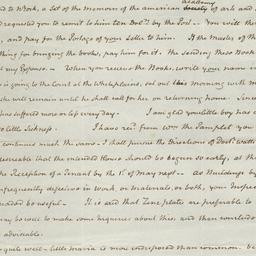 academy
d to Work, a set of the memoirs of the american society of arts and
I requested you to remit to him ten Dols. by the Post. You will th
, and pay for the Postage of your Letter to him. If the master of th
thing for bringing the books, pay him for it. The sending these Book
at my Expense. When you receive the Books, write your name in
is going to the Court at the Whiteplains, set out this morning with m
she will remain until he shall call for her on returning home. Since
has suffered more or less every day. I am glad your little boy has
to little sickness. I have recd. from Wm. the Pamphlet you
continues much the same. I shall pursue the Directions of Doctr.
desireable that the intended House should be begun so early, as th
the Reception of a Tenant by the 1st. of may next. As Buildings by
infrequently defective in Work or Materials, or both, your Inspec
indeed be useful. It is said that Zinc plates are preferable to
may be well to make some inquiries about this, and then
advisable.
quite well - little maria is more indisposed than common. be